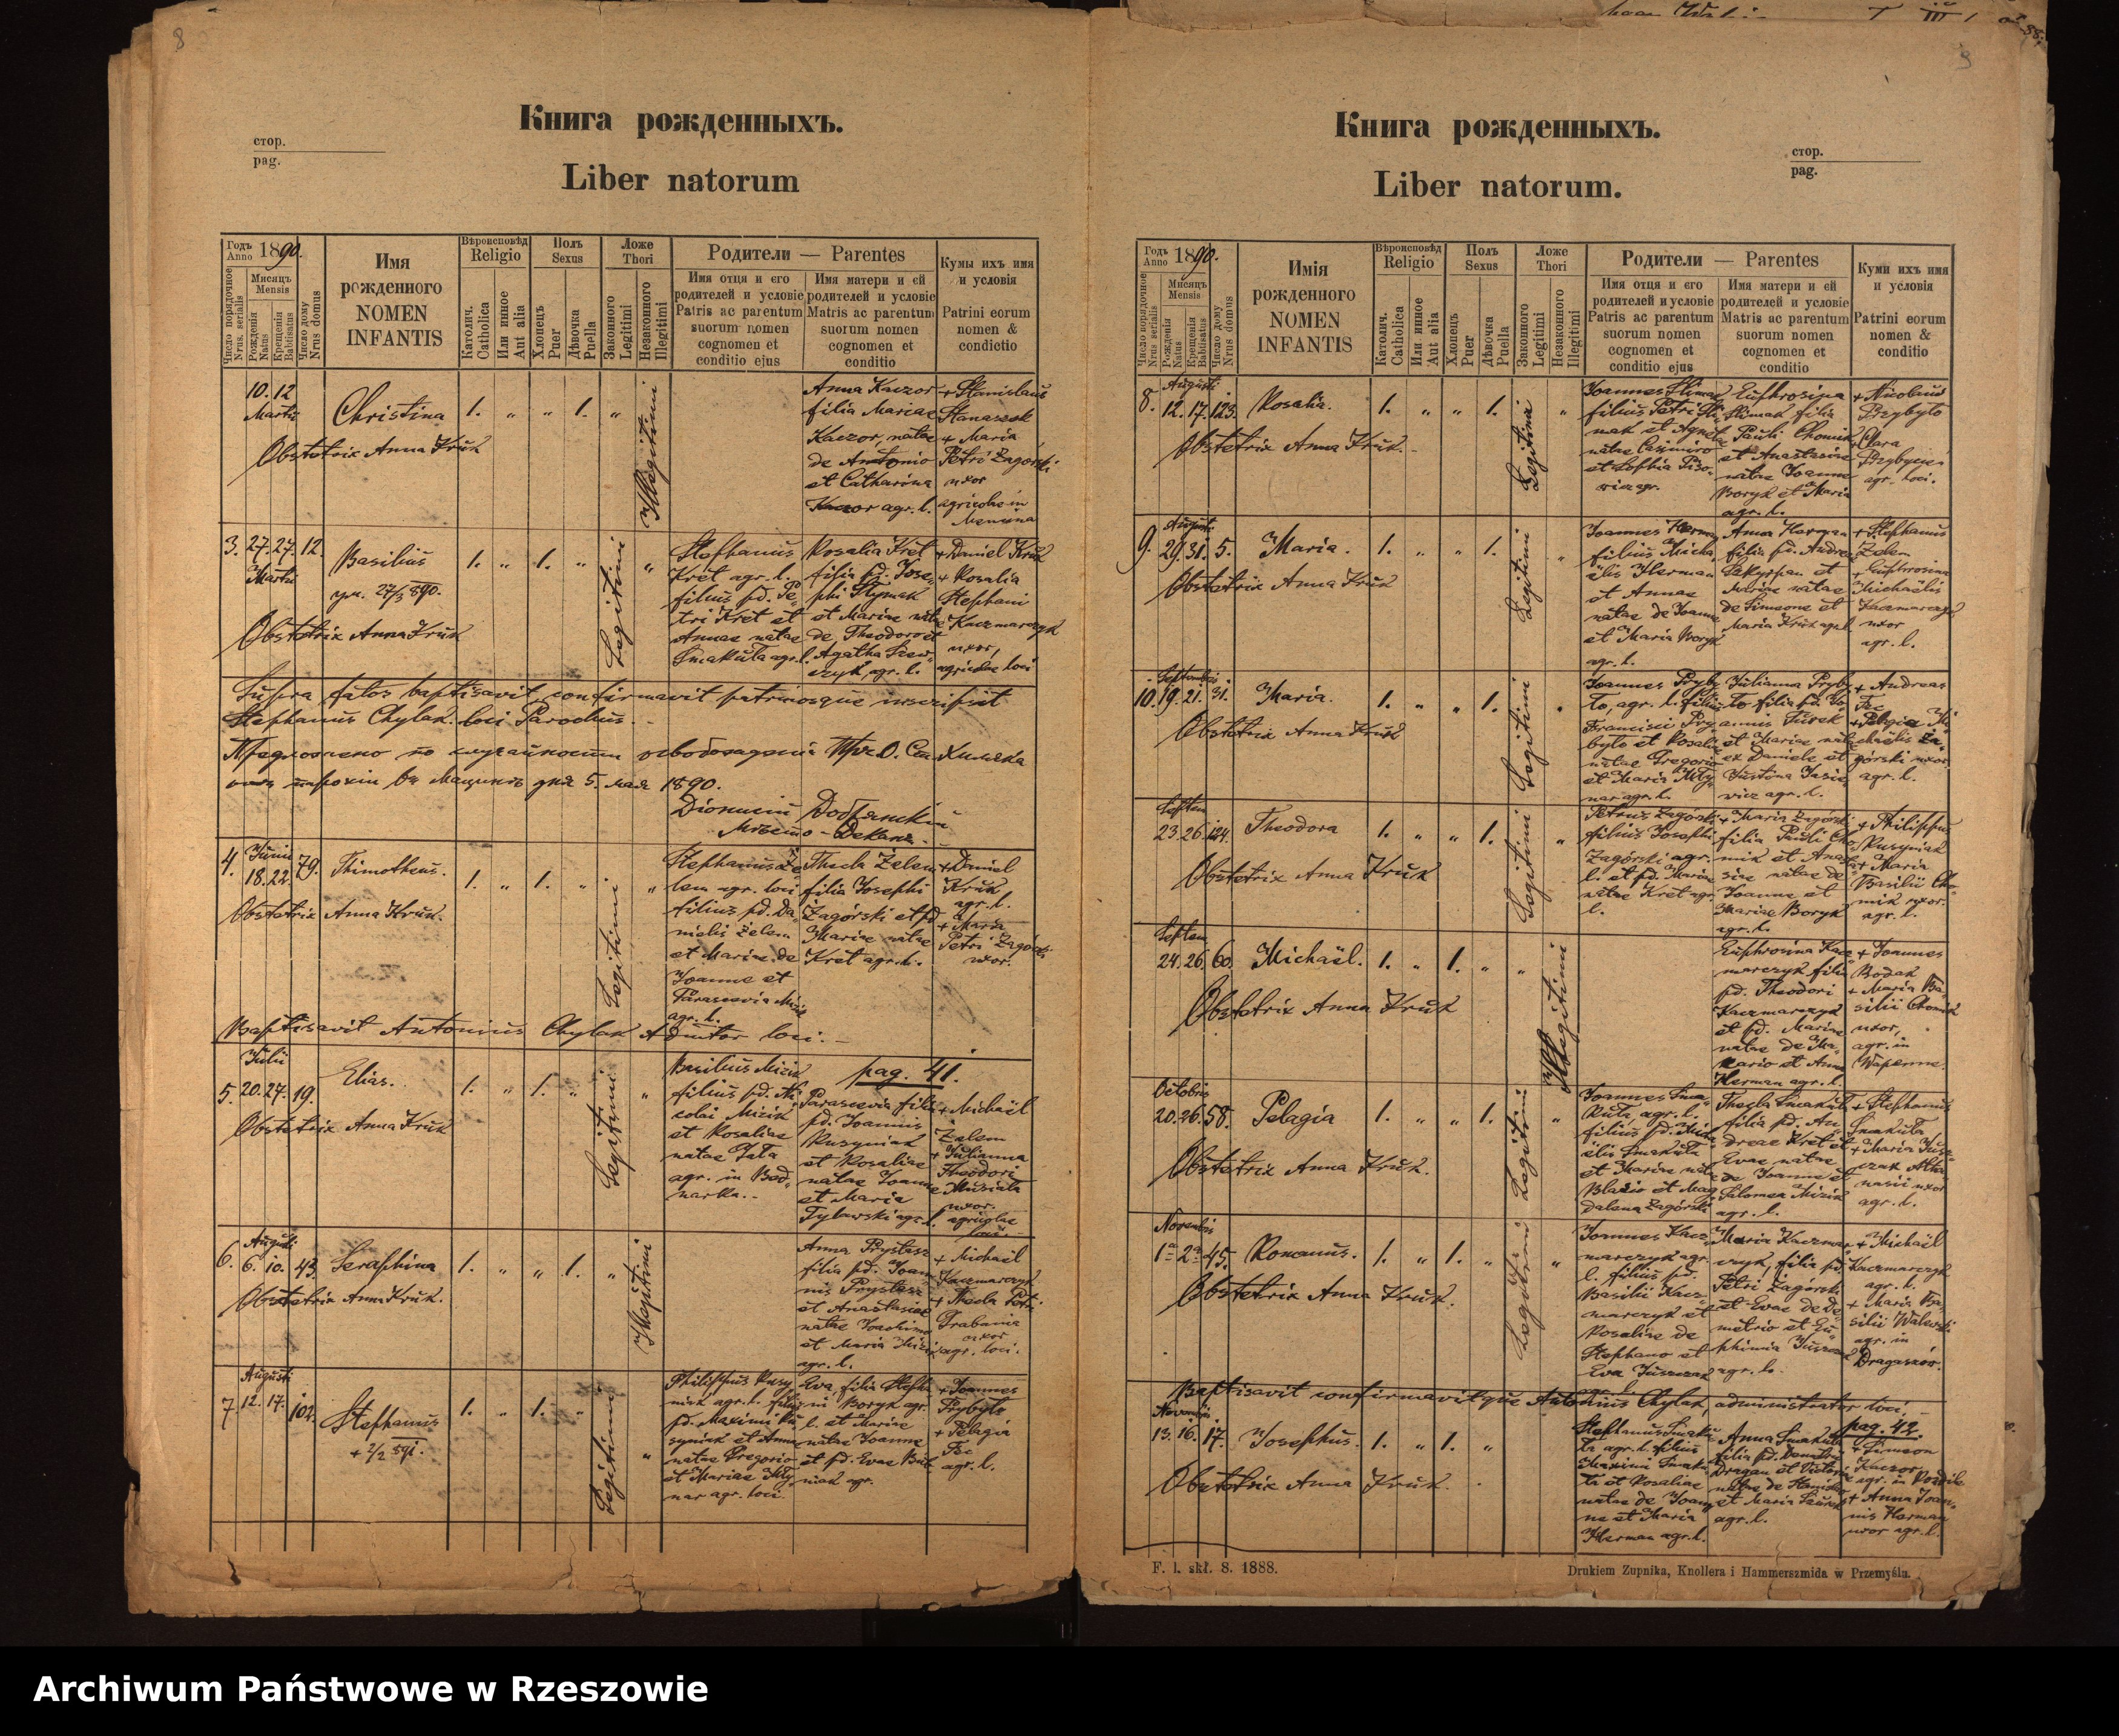 8
Книга рожденныхъ.
стор.
pag.
Liber natorum
Годъ
Anno 1890.
Мисяцъ
Mensis
Число порядочное
Nrus. serialis
Рожденія
Natus
Крещенія
Babtisatus
Число дому
Nrus domus
Имя
рожденного
NOMEN
INFANTIS
Вѣроисповѣд
Religio
Католич.
Catholica
Или инное
Aut alia
Полъ
Sexus
Хлопецъ
Puer
Дѣвочка
Puella
Ложе
Thori
Законного
Legitimi
Незаконного
Illegitimi
Родители — Parentes
Имя отця и его
родителей и условіе
Patris ac parentum
suorum nomen
cognomen et
conditio ejus
Имя матери и єй
родителей и условіе
Matris ac parentum
suorum nomen
cognomen et
conditio
Кумы ихъ имя
и условія
Patrini eorum
nomen &
condictio
10. 12
Martii
Christina
1. " " 1. "
Illegitimi
Obstetrix Anna Kruk
Anna Kaczor
filia Mariae
Kaczor, natae
de Antonio
et Catharina
Kaczor agr. l.
+ Stanislaus
Stanaszek
+ Maria
Petri Zagórski
uxor
agricolae in
3. 27. 27. 12.
Martii
Basilius
27/3 890.
1. " 1. "
Legitimi
"
Obstetrix Anna Kruk
Stephanus
Kret agr. l.
filius pd. Pe-
tri Kret et
Annae natae
Smakuła agr. l.
Rosalia Kret
filia pd. Jose-
phi Szymak
et Mariae natae
de Theodoro et
Agatha Szew-
czyk, agr. l.
+ Daniel Kruk
+ Rosalia
Stephani
Kaczmarczyk
uxor,
agricolae loci
Supra fatos baptisavit confirmavit patrinosque inscripsit
Stephanus Chylak loci Parochus.
5. мая 1890.
4. Junii
18. 22. 79.
Thimotheus.
1. " 1. "
Legitimi
"
Obstetrix Anna Kruk.
Stephanus Ze-
lem agr. loci
filius pd. Da-
nielis Zelem
et Mariae de
Joanne et
Parascevia Mizik
agr. l.
Thecla Zelem
filia Josephi
Zagórski et pd.
Mariae natae
Kret agr. l.
+ Daniel
Kruk
agr. l.
+ Maria
Petri Zagórski
uxor.
Baptisavit Antonius Chylak Adiutor loci.
Julii
5. 20. 27. 19.
Elias.
1. " 1. "
Legitimi
"
Obstetrix Anna Kruk
Basilius Mizik
filius pd. Ni-
colai Mizik
et Rosaliae
natae Feta
agr. in Bed-
narka.
pag. 41.
Parascevia filia
pd. Joannis
Rusyniak
et Rosaliae
natae Joanne
et Maria
Tylawski agr. l.
+ Michaël
Zelem
+ Julianna
Theodori
Musiała
uxor.
agricolae
loci.
Augusti
6. 6. 10. 43.
Seraphina
1. " " 1. "
Illegitimi
Obstetrix Anna Kruk.
Anna Prystasz
filia pd. Joan-
nis Prystasz
et Anastasiae
natae Joachimo
et Maria Mizik
agr. l.
+ Michaël
Kaczmarczyk
+ Thecla Petri
Grabania
uxor
agr. loci.
Augusti
7. 12. 17. 102.
Stephanus
+ 2/2 891.
1. " 1. "
Legitimi
"
Philippus Rusy-
niak agr. l. filius
pd. Maximi Ru-
syniak et Anna
natae Gregorio
et Mariae Mły-
nar agr. loci.
Eva, filia Stepha-
ni Boryk agr.
l. et Mariae
natae Joanne
et pd. Evae Rusi-
niak agr.
+ Joannes
Przybyło
+ Pelagia
Fec
agr. l.
9
Книга рожденныхъ.
стор.
pag.
Liber natorum.
Годъ
Anno 1890.
Мисяцъ
Mensis
Число порядочное
Nrus serialis
Рожденія
Natus
Крещенія
Babtisatus
Число дому
Nrus domus
Имія
рожденного
NOMEN
INFANTIS
Вѣроисповѣд
Religio
Католич.
Catholica
Или инное
Aut alia
Полъ
Sexus
Хлопецъ
Puer
Дѣвочка
Puella
Ложе
Thori
Законного
Legitimi
Незаконного
Illegitimi
Родители — Parentes
Имя отця и его
родителей и условіе
Patris ac parentum
suorum nomen
cognomen et
conditio ejus
Имя матери и єй
родителей и условіе
Matris ac parentum
suorum nomen
cognomen et
conditio
Куми ихъ имя
и условія
Patrini eorum
nomen &
conditio
Augusti
8. 12. 17. 123.
Rosalia.
1. " " 1.
Legitimi
"
Obstetrix Anna Kruk.
Joannes Slimak
filius Petri Sli-
mak et Agneta
natae Casimiro
et Sophia Piro-
wicz agr.
Euphrosina
Slimak filia
Pauli Chomik
et Anastasiae
natae Joanne
Boryk et Maria
agr. l.
+ Nicolaus
Przybyło
Clara
agr. loci.
Augusti
9. 29. 31. 5.
Maria.
1. " " 1.
Legitimi
"
Obstetrix Anna Kruk
Joannes Herman
filius Micha-
ëlis Herman
et Annae
natae de Joanne
et Maria Boryk
agr. l.
Anna Herman
filia pd. Andreae
Szkyrpan et
Mariae natae
de Simeone et
Maria Kruk agr. l.
+ Stephanus
Zelem
+ Euphrosina
Michaëlis
Kaczmarczyk
uxor
agr. l.
Septembris
10. 19. 21. 31.
Maria.
1. " " 1.
Legitimi
"
Obstetrix Anna Kruk
Joannes Pryby-
ło, agr. l. filius
Francisci Pry-
było et Rosaliae
natae Gregorio
et Maria Mły-
nar agr. l.
Julianna Pryby-
ło filia pd. Jo-
annis Turek
et Mariae natae
ex Daniele et
Justina Jasie-
wicz agr. l.
+ Andreas
Fec
+ Pelagia Mi-
chaëlis Za-
górski uxor
agr. l.
Septem.
23. 26. 124.
Theodora
1. " " 1.
Legitimi
"
Obstetrix Anna Kruk
Petrus Zagórski
filius Josephi
Zagórski agr.
l. et pd. Mariae
natae Kret agr.
l.
+ Maria Zagórski
filia Pauli Cho-
mik et Anasta-
siae natae de
Joanne et
Mariae Boryk
agr. l.
+ Philippus
Rusyniak
+ Maria
Basilii Cho-
mik uxor.
agr. l.
Septem.
24. 26. 60.
Michaël.
1. " 1. " "
Illegitimi
Obstetrix Anna Kruk
Euphrosina Kacz-
marczyk filia
pd. Theodori
Kaczmarczyk
et pd. Mariae
natae de Ma-
cario et Anna
Herman agr. l.
+ Joannes
Bodak
+ Maria Ba-
silii Chomik
uxor,
agr. in
Wapienne.
Octobris
20. 26. 58.
Pelagia
1. " " 1.
Legitimi
"
Obstetrix Anna Kruk.
Joannes Sma-
kuła, agr. l.
filius pd. Micha-
ëlis Smakuła
et Mariae natae
Blasio et Mag-
dalena Zagórski
Thecla Smakuła
filia pd. An-
dreae Kret et
Evae natae
de Joanne et
Salomea Mizik
agr. l.
+ Stephanus
Smakuła
+ Maria Jusz-
czak Atha-
nasii uxor
agr. l.
Novembris
1ª 2ª 45.
Romanus.
1. " 1. "
Legitimi
"
Obstetrix Anna Kruk.
Joannes Kacz-
marczyk agr.
l. filius pd.
Basilii Kacz-
marczyk et
Rosaliae de
Stephano et
Eva Juszczak
agr. l.
Maria Kaczmar-
czyk, filia pd.
Petri Zagórski
et Evae de De-
metrio et Eu-
phimia Juszczak
agr. l.
+ Michaël
Kaczmarczyk
agr. l.
+ Maria Ba-
silii Walewski
agr. in
Dragaszów.
Baptisavit confirmavitque Antonius Chylak, administrator loci.
Novembris
13. 16. 17.
Josephus.
1. " 1. "
Obstetrix Anna Kruk.
Stephanus Smaku-
ła agr. l. filius
Maximi Smaku-
ła et Rosaliae
natae de Joan-
ne et Maria
Herman agr. l.
Anna Smakuła
filia pd. Demetrii
Dragan et Victoriae
natae de Stanislao
et Maria Szurek
agr. l.
pag. 42.
+ Simeon
Kaczor
agr. in
+ Anna Joan-
nis Herman
uxor agr. l.
F. l. skł. 8. 1888.
Drukiem Zupnika, Knollera i Hammerszmida w Przemyślu.
Archiwum Państwowe w Rzeszowie